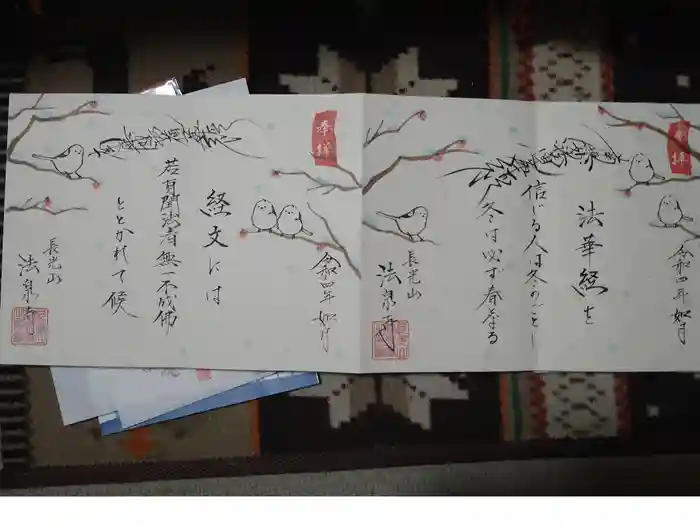 奉拝
法華経を
信じる人は冬のごとし
冬は必ず春となる
令和四年如月
長光山
法泉寺
奉拝
経文には
若有聞法者無一不成佛
ととかれて候
令和四年如月
長光山
法泉寺